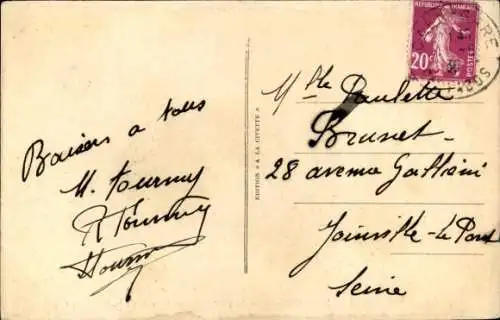 Baisers a tous
M. Tournuy
R Tournuy
Tourn
EDITION "A LA CIVETTE"
REPUBLIQUE FRANÇAISE
20c
POSTES
Mlle Paulette
Brunet
28 avenue Galliéni
Joinville-le-Pont
Seine